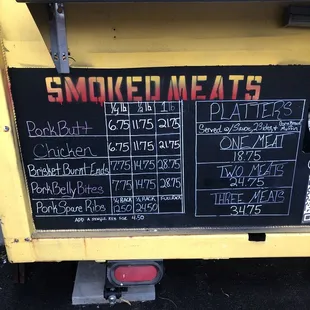 SMOKED MEATS
¼ lb ½ lb 1 lb
Pork Butt 6.75 11.75 21.75
Chicken 6.75 11.75 21.75
Brisket Burnt Ends 7.75 14.75 28.75
Pork Belly Bites 7.75 14.75 28.75
Pork Spare Ribs ½ RACK
12.50 24.50
ADD A SINGLE RIB FOR 4.50
PLATTERS
Served w/ Sauce, 2 sides &
ONE MEAT
18.75
TWO MEATS
24.75
THREE MEATS
34.75